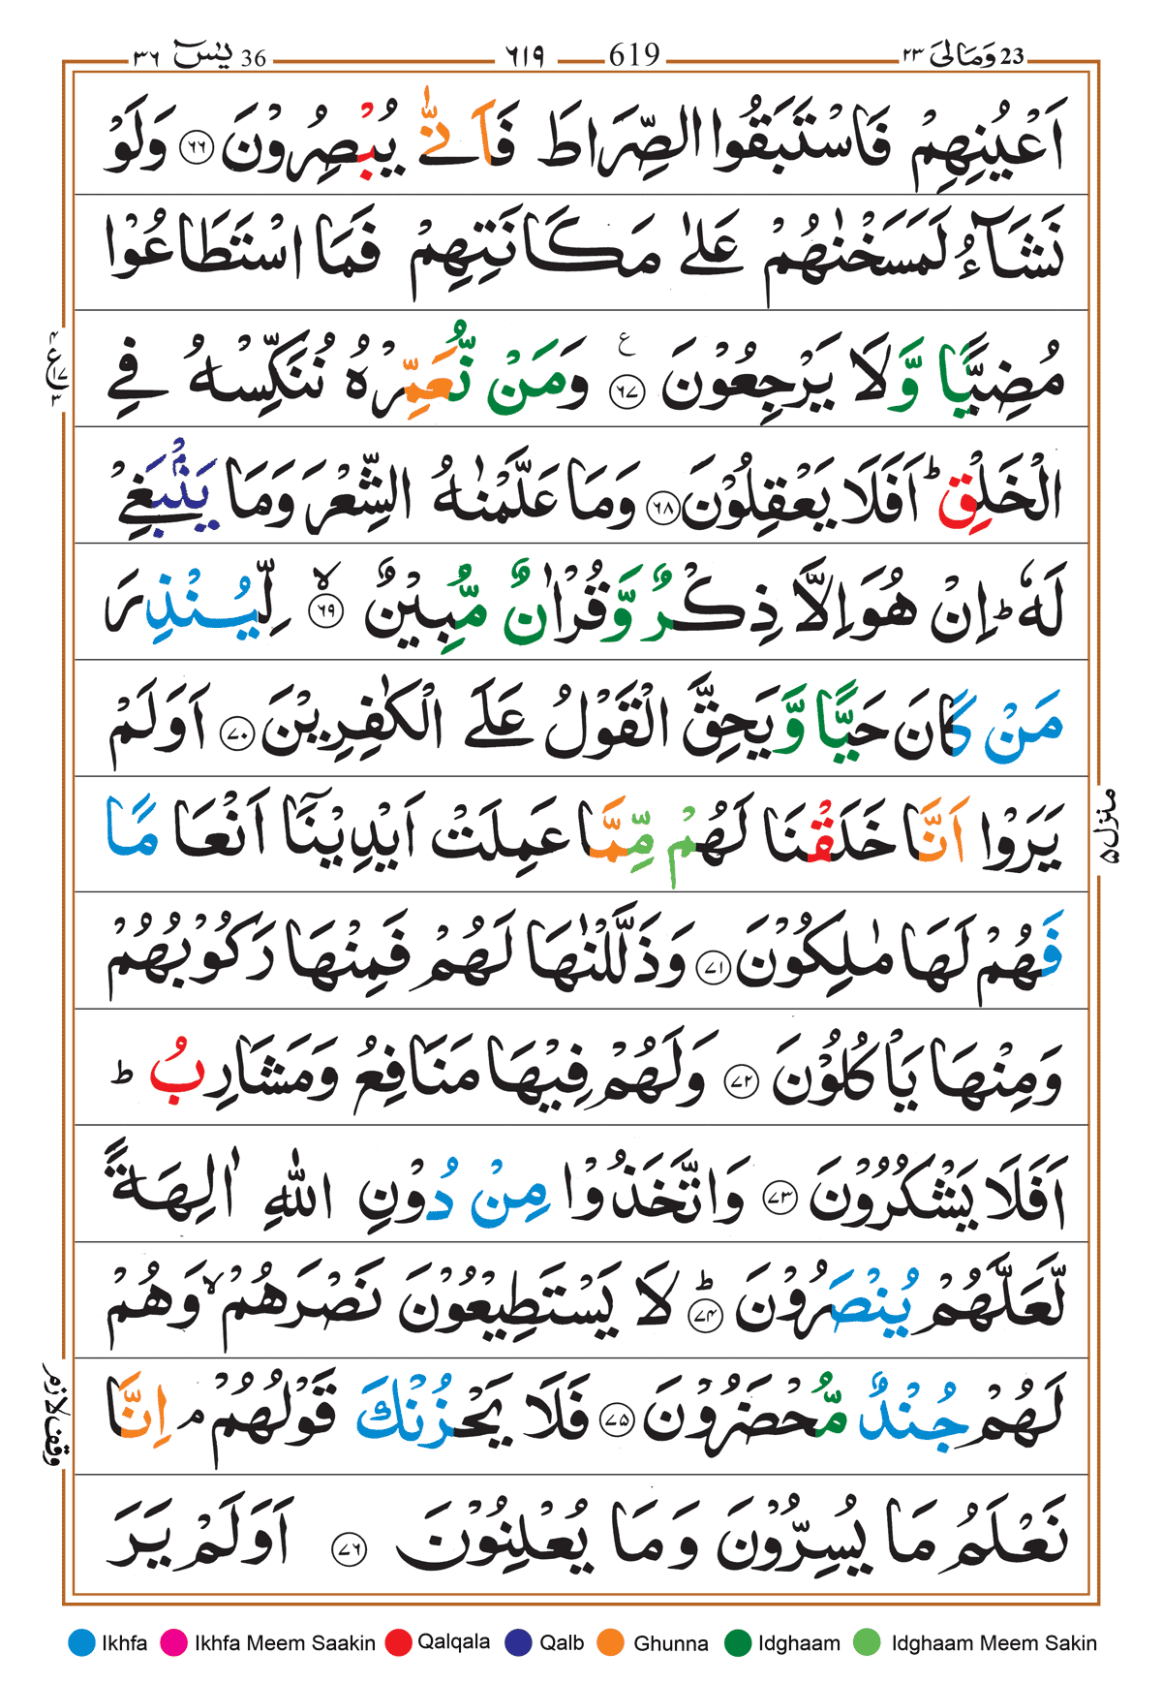 36 يٰسٓ ٣٦ ٦١٩ 619 23 وَمَالِىَ ٢٣
اَعْيُنِهِمْ فَاسْتَبَقُوا الصِّرَاطَ فَاَنّٰى يُبْصِرُوْنَ ٦٦ وَلَوْ
نَشَآءُ لَمَسَخْنٰهُمْ عَلٰى مَكَانَتِهِمْ فَمَا اسْتَطَاعُوْا
مُضِيًّا وَّلَا يَرْجِعُوْنَ ٦٧ ع وَمَنْ نُّعَمِّرْهُ نُنَكِّسْهُ فِى
الْخَلْقِ ؕ اَفَلَا يَعْقِلُوْنَ ٦٨ وَمَا عَلَّمْنٰهُ الشِّعْرَ وَمَا يَنْۢبَغِىْ
لَهٗ ؕ اِنْ هُوَ اِلَّا ذِكْرٌ وَّقُرْاٰنٌ مُّبِيْنٌ ٦٩ ۙ لِّيُنْذِرَ
مَنْ كَانَ حَيًّا وَّيَحِقَّ الْقَوْلُ عَلَى الْكٰفِرِيْنَ ٧٠ اَوَلَمْ
يَرَوْا اَنَّا خَلَقْنَا لَهُمْ مِّمَّا عَمِلَتْ اَيْدِيْنَاۤ اَنْعَا مًا
فَهُمْ لَهَا مٰلِكُوْنَ ٧١ وَذَلَّلْنٰهَا لَهُمْ فَمِنْهَا رَكُوْبُهُمْ
وَمِنْهَا يَاْكُلُوْنَ ٧٢ وَلَهُمْ فِيْهَا مَنَافِعُ وَمَشَارِبُ ؕ
اَفَلَا يَشْكُرُوْنَ ٧٣ وَاتَّخَذُوْا مِنْ دُوْنِ اللّٰهِ اٰلِهَةً
لَّعَلَّهُمْ يُنْصَرُوْنَ ٧٤ ؕ لَا يَسْتَطِيْعُوْنَ نَصْرَهُمْ ۙ وَهُمْ
لَهُمْ جُنْدٌ مُّحْضَرُوْنَ ٧٥ فَلَا يَحْزُنْكَ قَوْلُهُمْ ۘ اِنَّا
نَعْلَمُ مَا يُسِرُّوْنَ وَمَا يُعْلِنُوْنَ ٧٦ اَوَلَمْ يَرَ
منزل ٥
وقف لازم
Ikhfa Ikhfa Meem Saakin Qalqala Qalb Ghunna Idghaam Idghaam Meem Sakin